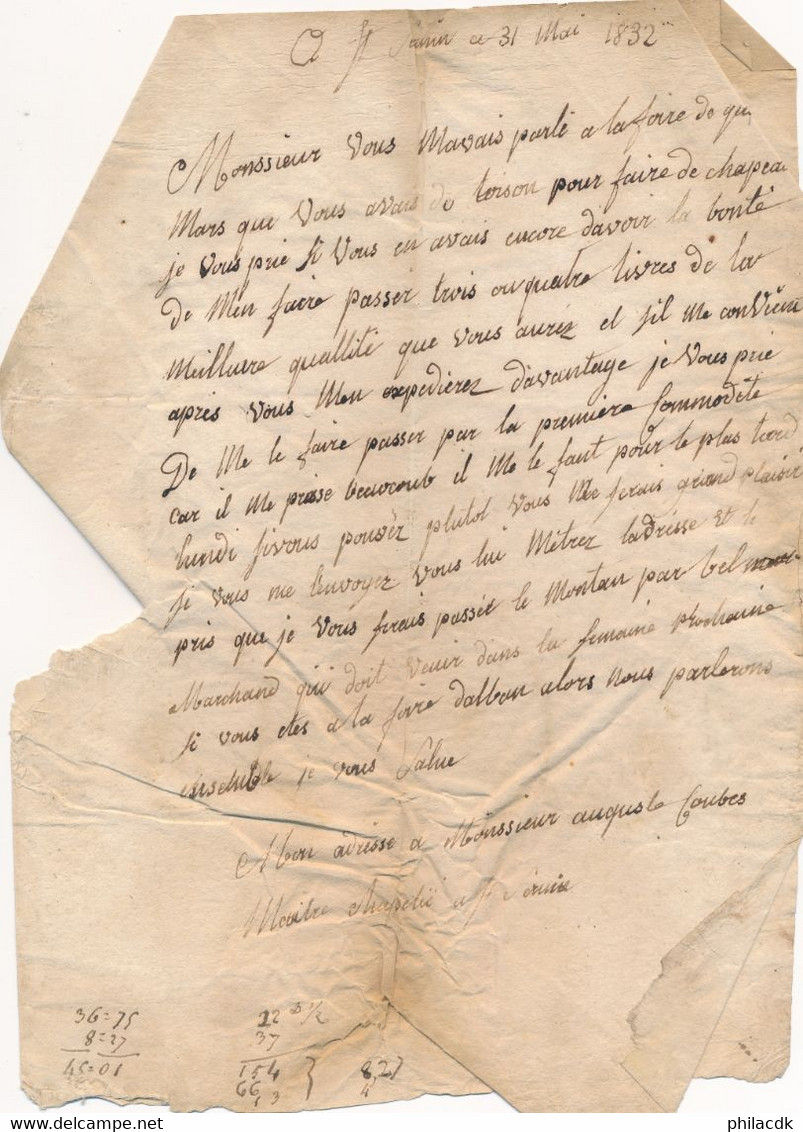 A St ce 31 Mai 1832
Monssieur Vous Mavais parlé a la foire de
Mars que Vous avais de toison pour faire de chapeau
je vous prie si Vous en avais encore davoir la bonté
de Men faire passer trois ou quatre livres de la
Meilluire quallité que vous auréz et sil Me conviēne
apres vous Men expedierez davantage je vous prie
De Me le faire passer par la première Commodèté
car il me presse beaucoub il Me le faut pour le plus tard
lundi sivous pouvéz plutot vous Me ferais grand plaisir
si vous me lenvoyez vous lui Métrez ladresse et le
pris que je vous ferais passér le Montan par bel
Marchand qui doit venir dans la semaine prochaine
si vous etes a la foire dalban alors nous parlerons
ensemble je vous salue
Mon adresse a Monssieur auguste Combes
Maitre chapelié a St
36=75
8=27
45=01
22 1/2
37
154
66
13
827
4
philacdk